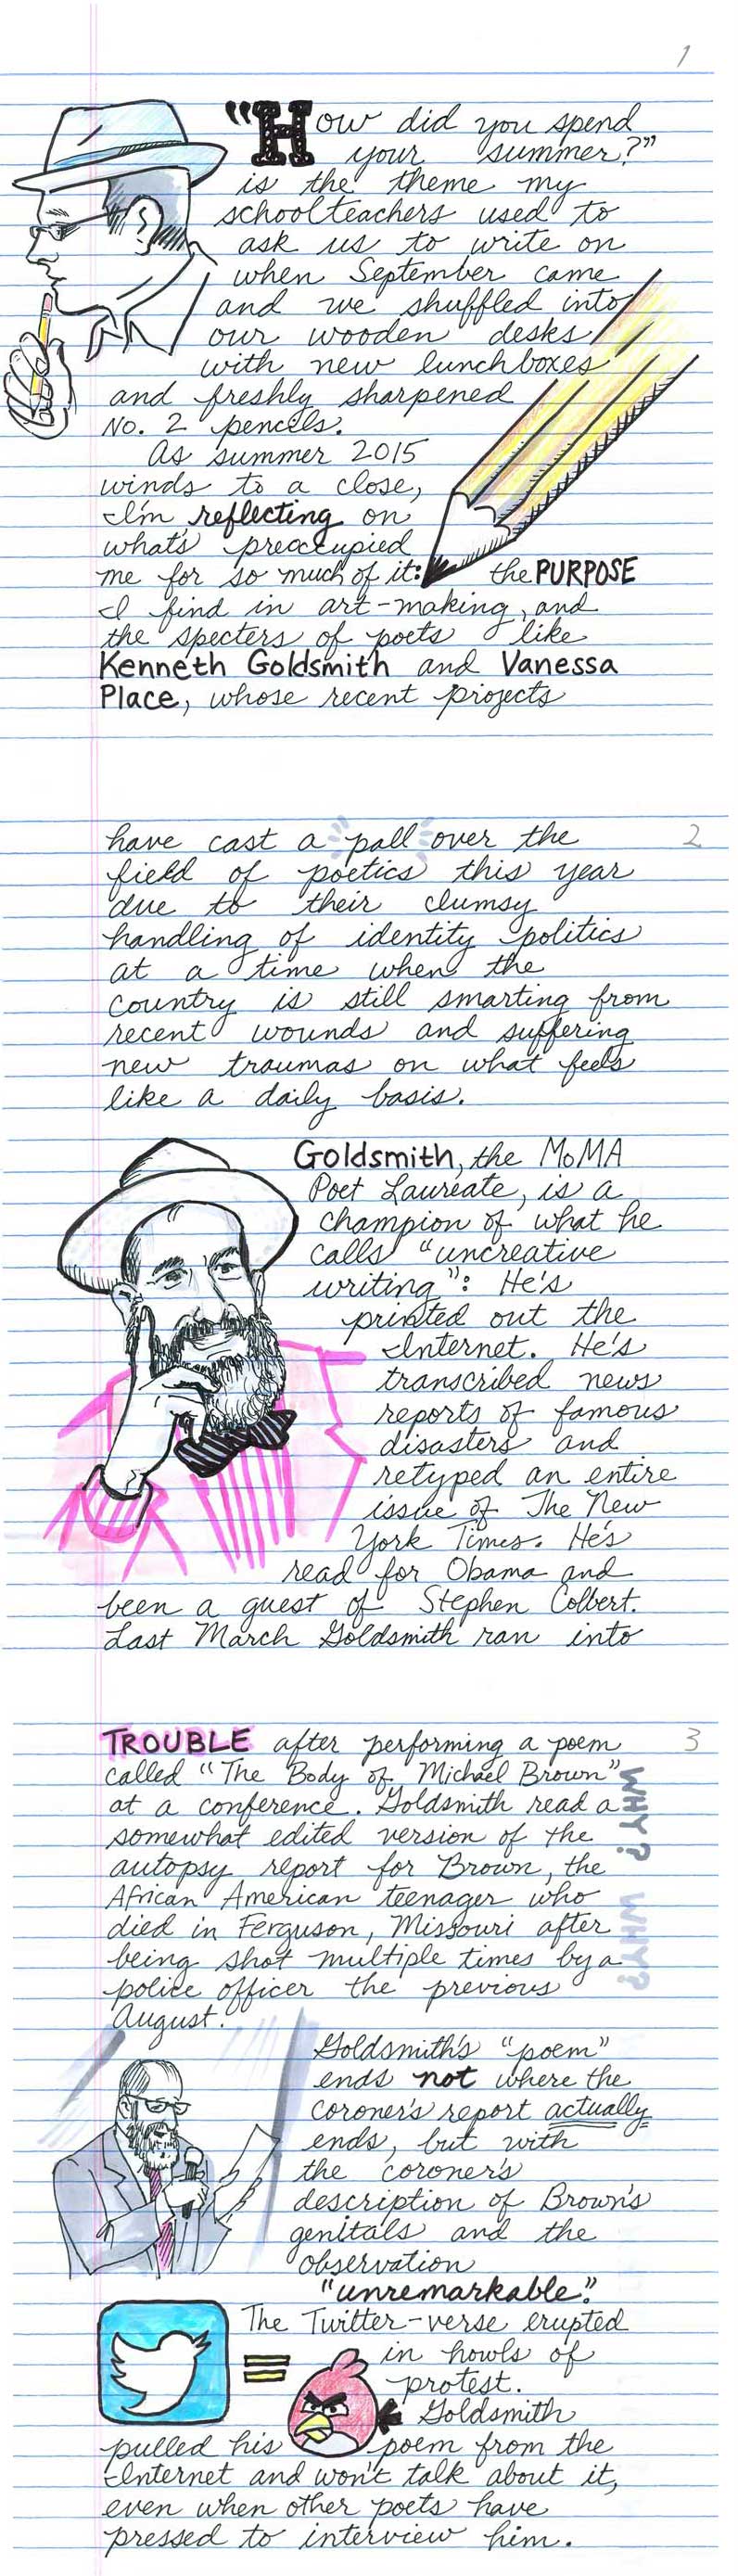 1
"How did you spend
your summer?"
is the theme my
schoolteachers used to
ask us to write on
when September came
and we shuffled into
our wooden desks
with new lunchboxes
and freshly sharpened
No. 2 pencils.
As summer 2015
winds to a close,
I'm reflecting on
what's preoccupied
me for so much of it: the PURPOSE
I find in art-making, and
the specters of poets like
Kenneth Goldsmith and Vanessa
Place, whose recent projects
2
have cast a pall over the
field of poetics this year
due to their clumsy
handling of identity politics
at a time when the
country is still smarting from
recent wounds and suffering
new traumas on what feels
like a daily basis.
Goldsmith, the MoMA
Poet Laureate, is a
champion of what he
calls "uncreative
writing": He's
printed out the
Internet. He's
transcribed news
reports of famous
disasters and
retyped an entire
issue of The New
York Times. He's
read for Obama and
been a guest of Stephen Colbert.
Last March Goldsmith ran into
3
TROUBLE after performing a poem
called "The Body of Michael Brown"
at a conference. Goldsmith read a
somewhat edited version of the
autopsy report for Brown, the
African American teenager who
died in Ferguson, Missouri after
being shot multiple times by a
police officer the previous
August.
WHY? WHY?
Goldsmith's "poem"
ends not where the
coroner's report actually
ends, but with
the coroner's
description of Brown's
genitals and the
observation
"unremarkable."
The Twitter-verse erupted
in howls of
protest.
Goldsmith
pulled his poem from the
Internet and won't talk about it,
even when other poets have
pressed to interview him.